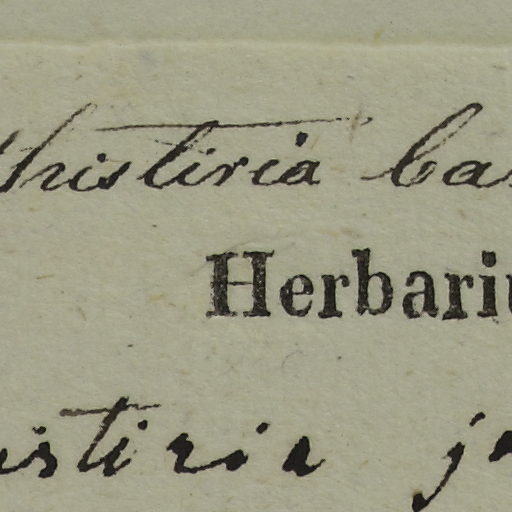 thistiria ca
Herbariu
istiria j